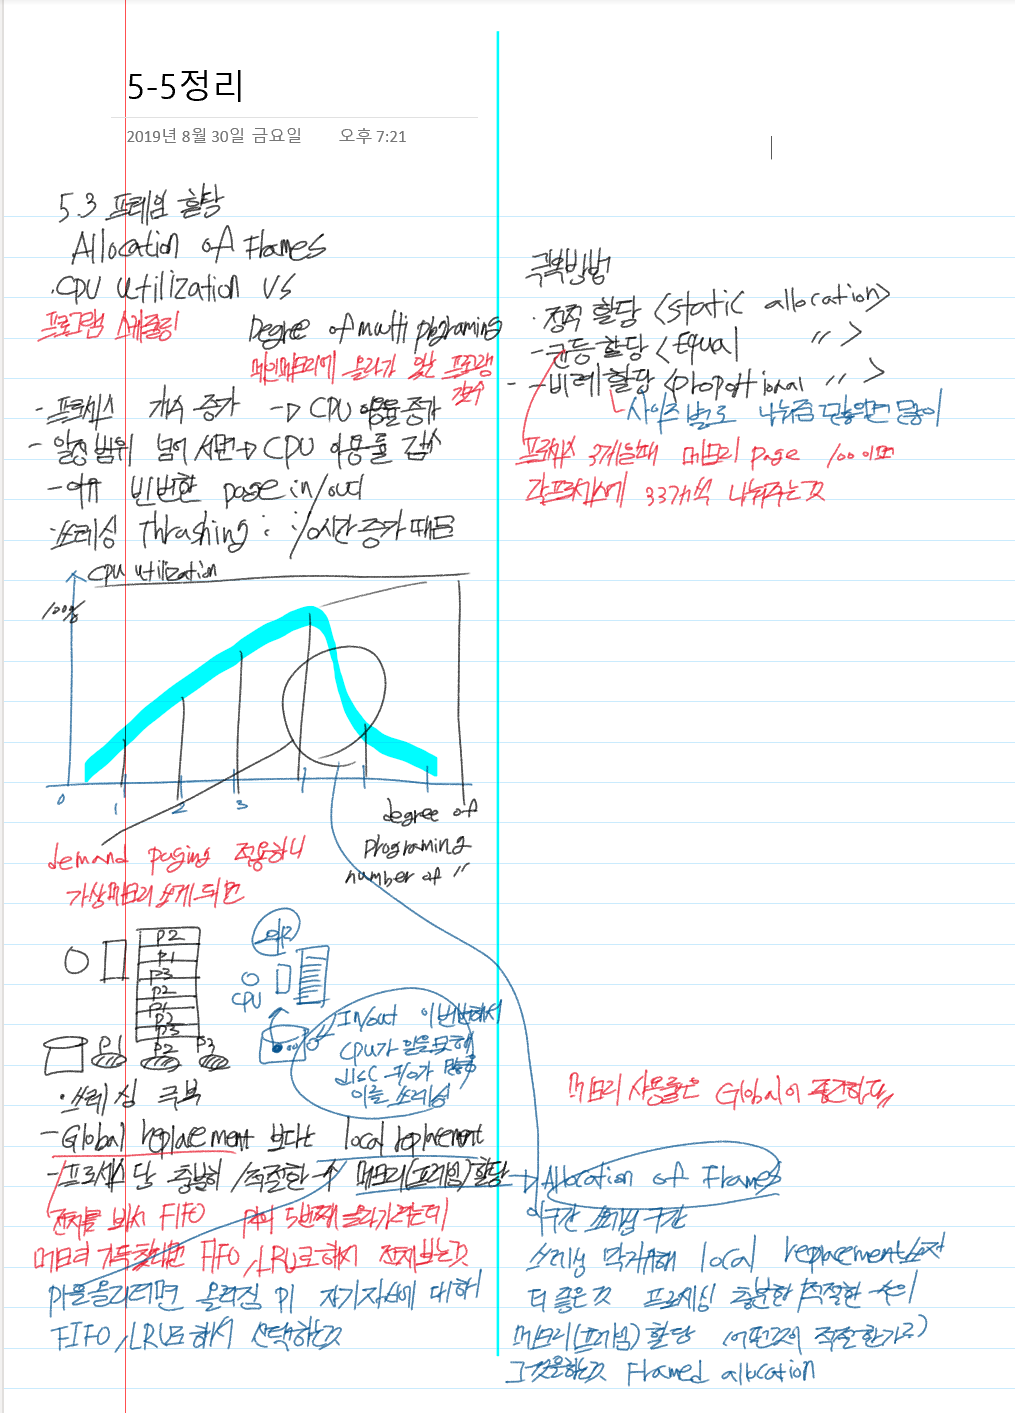 5-5정리
2019년 8월 30일 금요일 오후 7:21
5.3 프레임 할당
Allocation of Flames
·CPU utilization VS
프로그램 스케쥴링 Degree of multi programing
메인메모리에 올라가 있는 프로그램
갯수
- 프로세스 개수 증가 -> CPU 이용률 증가
- 일정범위 넘어서면 -> CPU 이용률 감소
- 이유 빈번한 page in/out
·쓰레싱 Thrashing : i/o시간 증가 때문
CPU utilization
100%
0 1 2 3
degree of
programing
number of 〃
demand paging 적용하니
가상메모리 쓰게되면
P2
P1
P3
P2
P1
P2
P3
P1 P2 P3
CPU
In/out 이 빈번해서
CPU가 일을 못해
disc
이를 쓰레싱
·쓰레싱 극복
- Global replacement 보다는 local replacement
- 프로세스 당 충분히/적절한 수 메모리(프레임)할당
전체를 봐서 FIFO 5번째 올라가려는데
메모리 가득찼다면 FIFO, LRU로해서 전체보는것
P1을올리려면 올라집 P1 자기자신에 대해서
FIFO, LRU로 해서 선택하는것
극복방법
·정적 할당 (static allocation)
- 균등할당 (Equal 〃 )
- 비례할당 (proportional 〃 )
사이즈 별로 나눠줌
프로세스 3개있을때 메모리 page 100이면
각프로세스에 33개씩 나눠주는것
메모리 사용률은 Global이 좋긴하다
-> Allocation of Flames
이구간 쓰레싱 구간
쓰레싱 막기위해 local replacement보다
더 좋은것 프로세싱 충분한/적절한 수의
메모리(프레임)할당 (어떤것이 적절한가?)
그것을하는것 Framed allocation